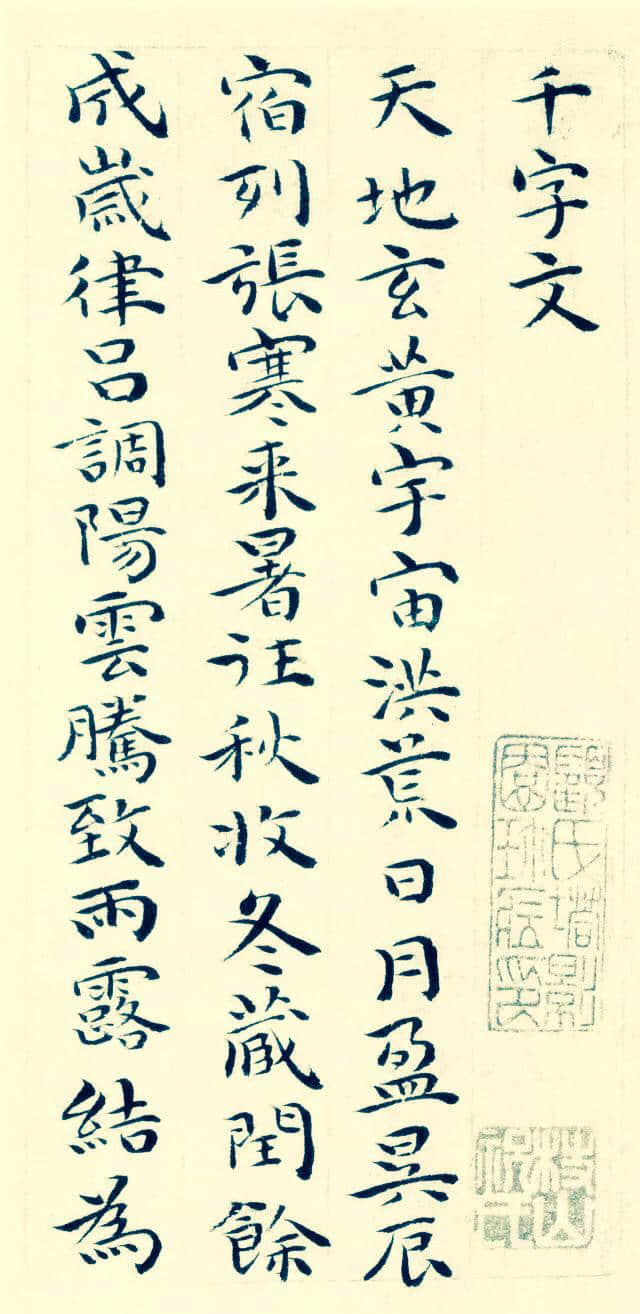 千字文
天地玄黄宇宙洪荒日月盈昃辰
宿列張寒来暑往秋收冬藏閏餘
成歲律吕調陽雲騰致雨露結為
氏塔影
園珍藏印